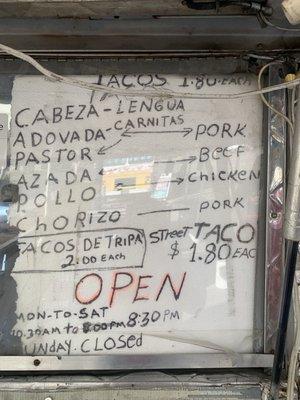 TACOS 1.80 EACH
CABEZA - LENGUA
ADOVADA - CARNITAS PORK
PASTOR
AZADA BEEF
POLLO CHICKEN
CHORIZO PORK
TACOS DE TRIPA
2.00 EACH
STREET TACO
$ 1.80 EAC
OPEN
MON-TO-SAT
10.30AM to 8:30PM
UNDAY. CLOSED